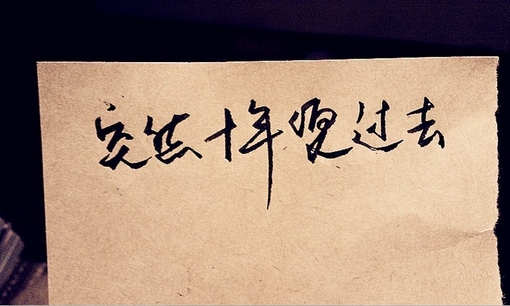 突然十年便过去